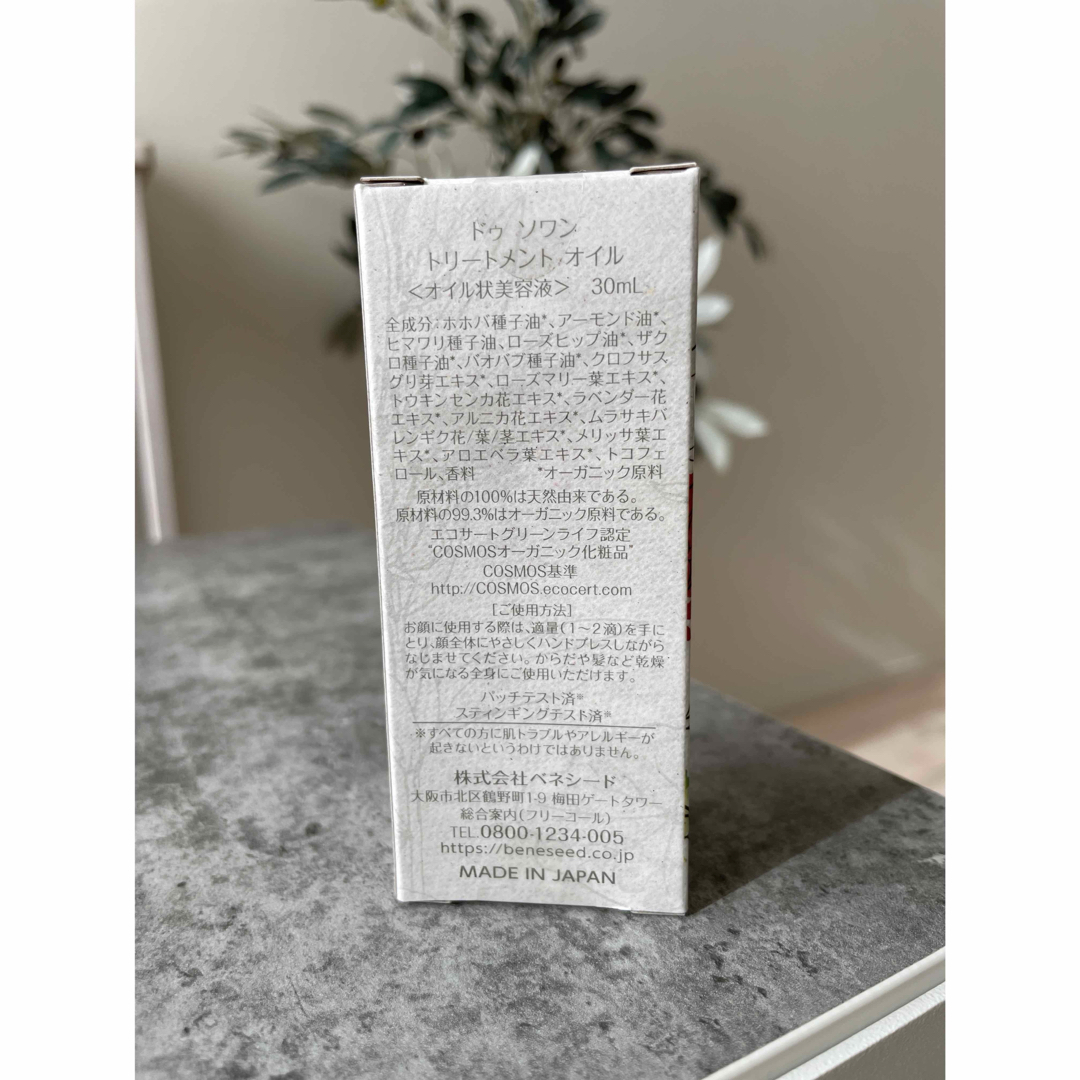 ドゥ ソワン
トリートメント オイル
＜オイル状美容液＞ 30mL
全成分：ホホバ種子油*、アーモンド油*、
ヒマワリ種子油、ローズヒップ油*、ザク
ロ種子油*、バオバブ種子油*、クロフサス
グリ芽エキス*、ローズマリー葉エキス*、
トウキンセンカ花エキス*、ラベンダー花
エキス*、アルニカ花エキス*、ムラサキバ
レンギク花/葉/茎エキス*、メリッサ葉エ
キス*、アロエベラ葉エキス*、トコフェ
ロール、香料 *オーガニック原料
原材料の100%は天然由来である。
原材料の99.3%はオーガニック原料である。
エコサートグリーンライフ認定
"COSMOSオーガニック化粧品"
COSMOS基準
http://COSMOS.ecocert.com
[ご使用方法]
お顔に使用する際は、適量(1〜2滴)を手に
とり、顔全体にやさしくハンドプレスしながら
なじませてください。からだや髪など乾燥
が気になる全身にご使用いただけます。
パッチテスト済※
スティンギングテスト済※
※すべての方に肌トラブルやアレルギーが
起きないというわけではありません。
株式会社ベネシード
大阪市北区鶴野町1-9 梅田ゲートタワー
総合案内(フリーコール)
TEL.0800-1234-005
https://beneseed.co.jp
MADE IN JAPAN